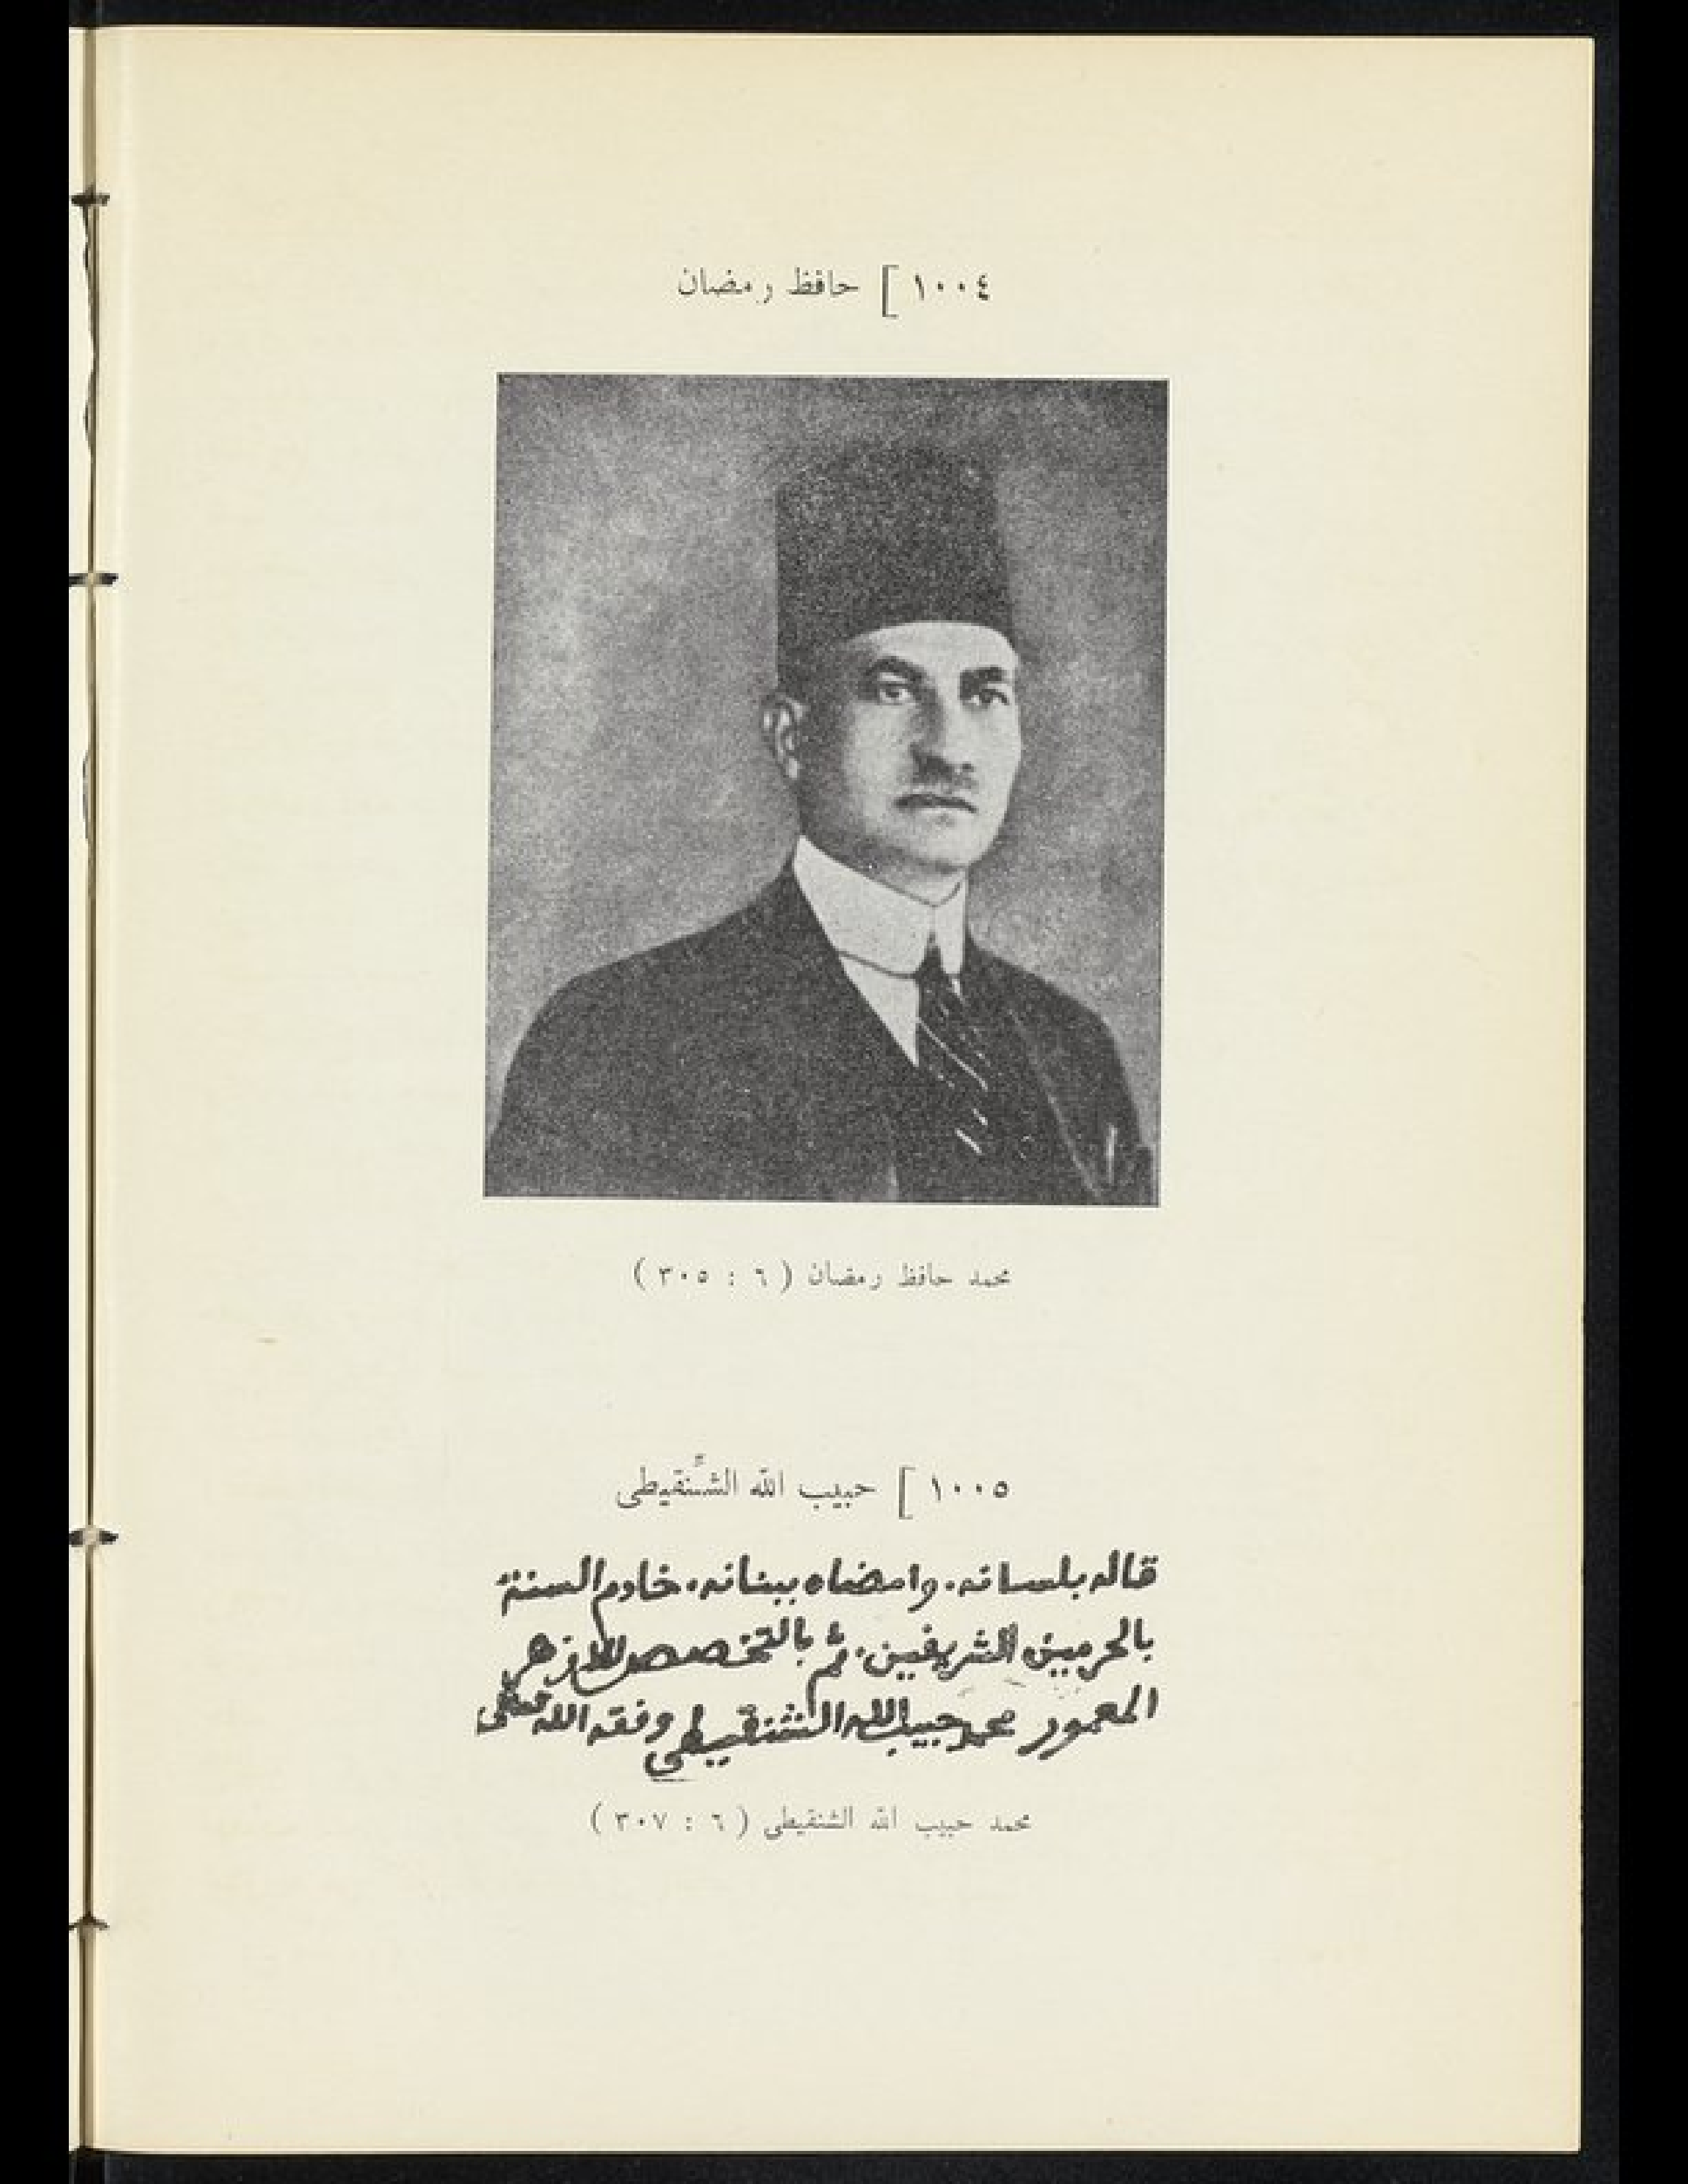 ١٠٠٤ [ حافظ رمضان
محمد حافظ رمضان ( ٦ : ٣٠٥ )
١٠٠٥ [ حبيب الله الشَّنقيطى
قاله بلسانه. وامضاه ببنانه. خادم السنة
بالحرمين الشريفين. ثم بالتخصص للازهر
المعمور محمد حبيب الله الشنقيطى وفقه الله تعالى
محمد حبيب الله الشنقيطى ( ٦ : ٣٠٧ )